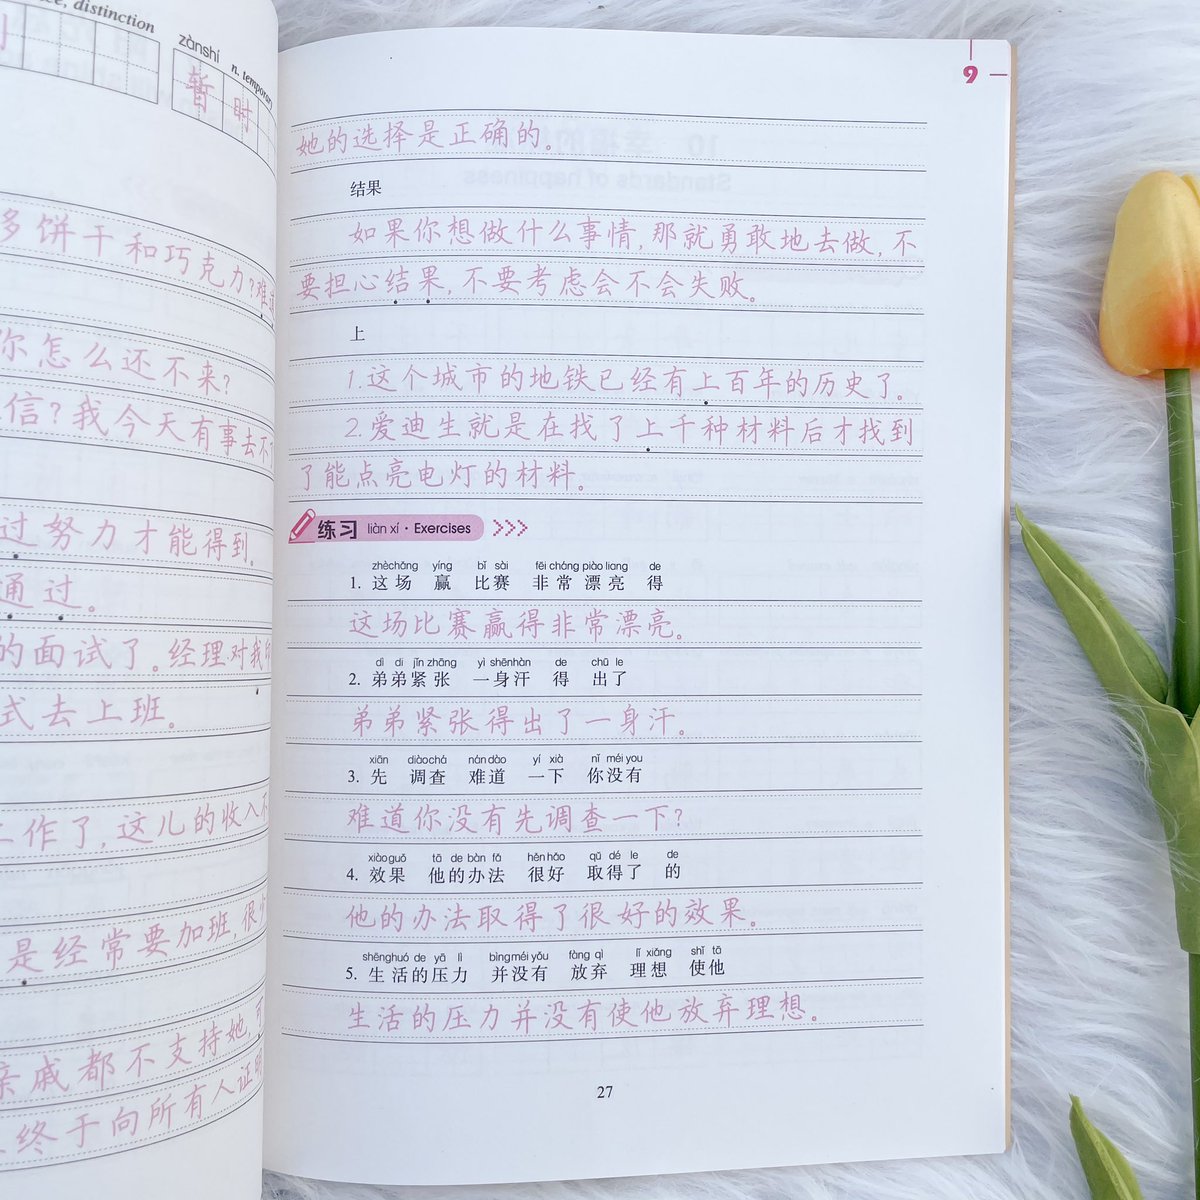 distinction
zànshí
n. temporary
暂时
多饼干和巧克力?难道
你怎么还不来?
信?我今天有事去不了
过努力才能得到。
通过。
的面试了。经理对我的
式去上班。
工作了,这儿的收入不
是经常要加班,很少
亲戚都不支持她,可
终于向所有人证明
9
她的选择是正确的。
结果
如果你想做什么事情,那就勇敢地去做,不
要担心结果,不要考虑会不会失败。
上
1.这个城市的地铁已经有上百年的历史了。
2.爱迪生就是在找了上千种材料后才找到
了能点亮电灯的材料。
练习 liàn xí · Exercises
zhèchǎng yíng bǐ sài fēi cháng piào liang de
1. 这场 赢 比赛 非常漂亮 得
这场比赛赢得非常漂亮。
dì di jǐn zhāng yì shēnhàn de chū le
2. 弟弟紧张 一身汗 得 出了
弟弟紧张得出了一身汗。
xiān diàochá nándào yí xià nǐ méi yǒu
3. 先 调查 难道 一下 你没有
难道你没有先调查一下?
xiàoguǒ tā de bàn fǎ hěnhǎo qǔ dé le de
4. 效果 他的办法 很好 取得了 的
他的办法取得了很好的效果。
shēnghuó de yā lì bìngméi yǒu fàng qì lǐ xiǎng shǐ tā
5. 生活的压力 并没有 放弃 理想 使他
生活的压力并没有使他放弃理想。
27